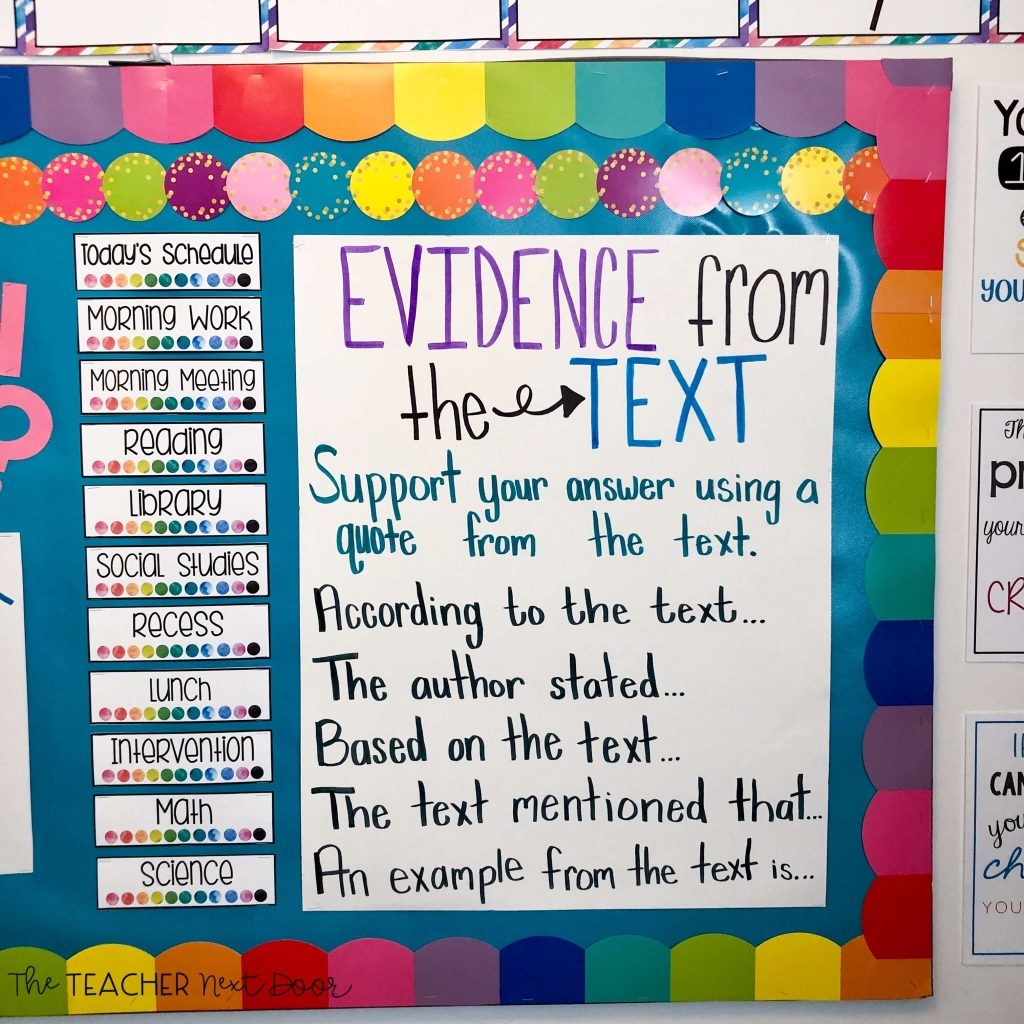 Today's Schedule
Morning Work
Morning Meeting
Reading
Library
Social Studies
Recess
Lunch
Intervention
Math
Science
EVIDENCE from
the TEXT
Support your answer using a
quote from the text.
According to the text...
The author stated...
Based on the text...
The text mentioned that...
An example from the text is...
your
CAN
The TEACHER Next Door